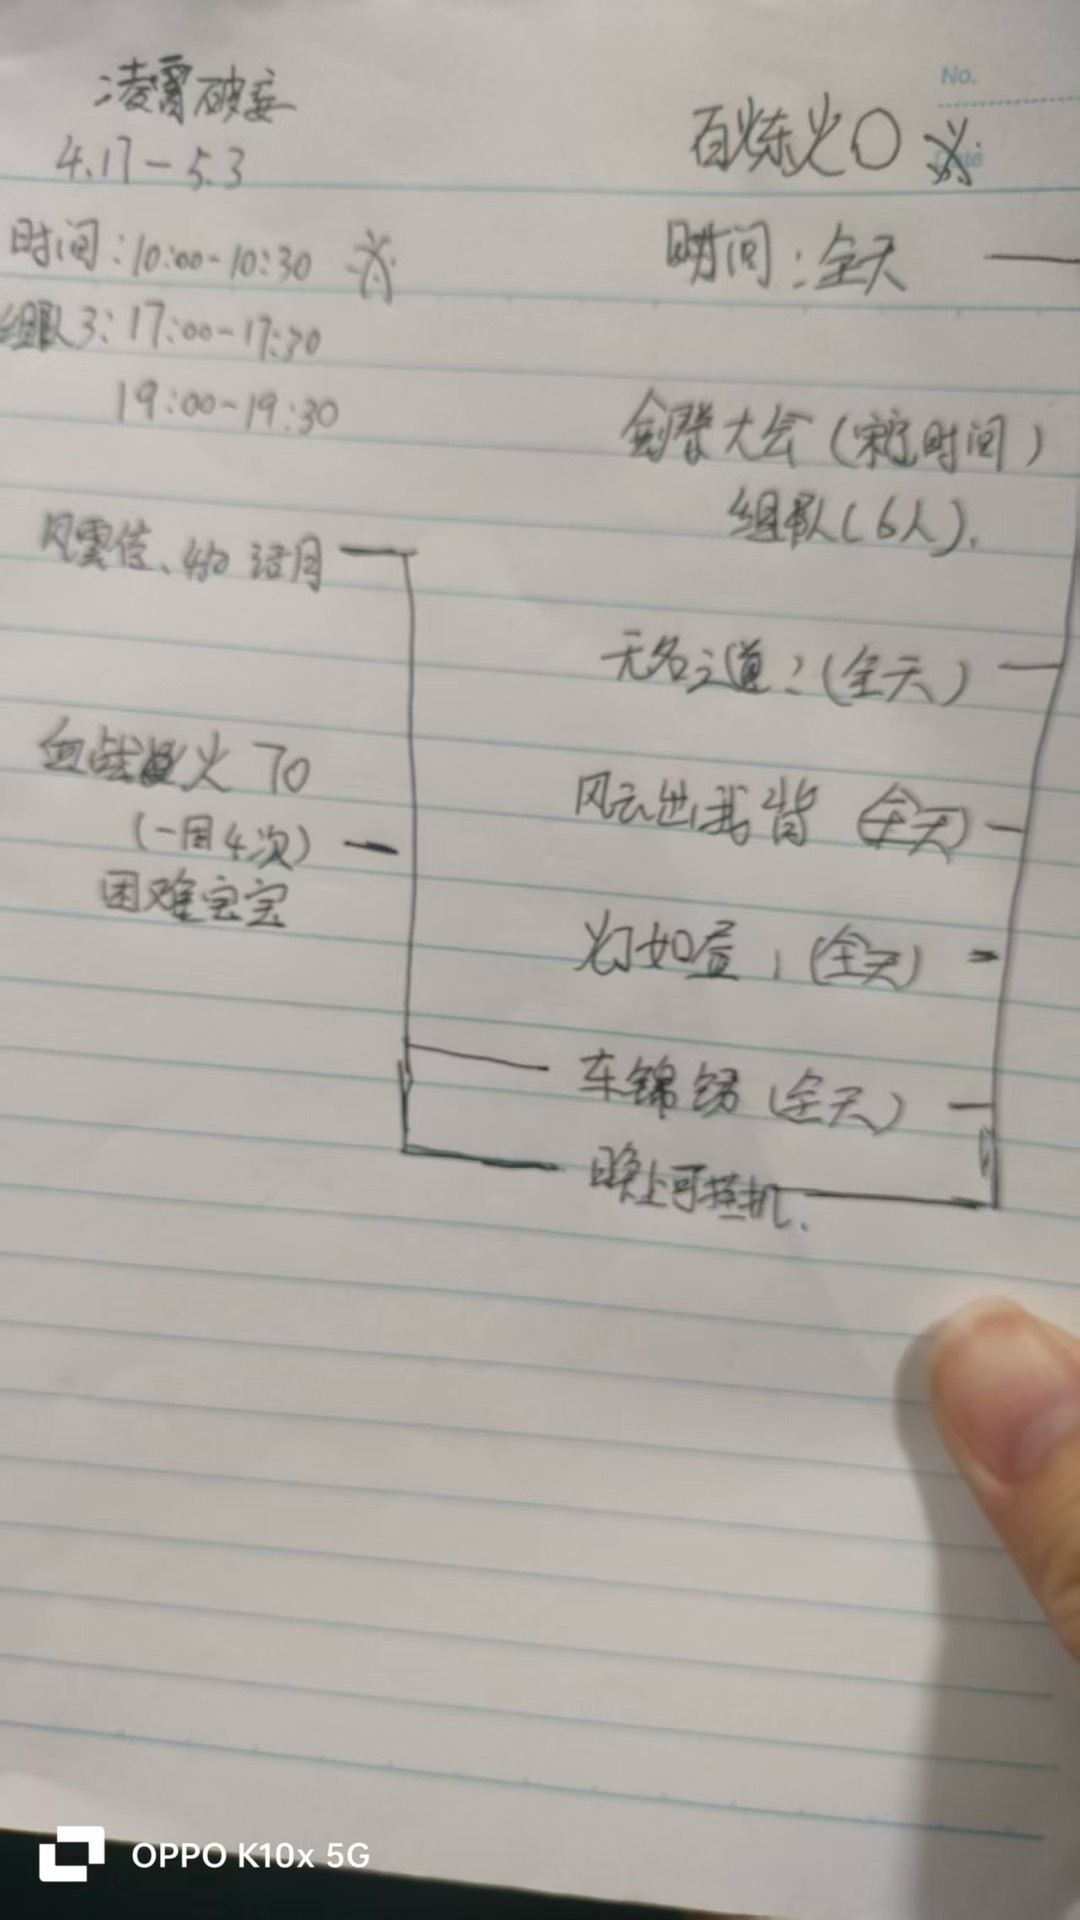 凌霄破妄
4.17-5.3
时间:10:00-10:30
组队3:17:00-17:30
19:00-19:30
风雲
月
血战 火 70
(一周4次)
困难宝宝
No.
百炼火〇
时间:全天
大会( 时间)
组队(6人).
无名之道:(全天)
风云出我 (全天)
灯如昼:(全天)
车锦绣(全天)
晚上可挂机.
OPPO K10x 5G